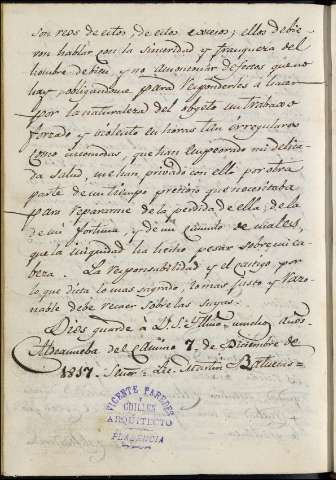 son reos de estos, de estos excesos; ellos debie-
ron hablar con la sinceridad y franqueza del
hombre de bien, y no amontonar defectos que no
hay, obligandome para responderles á hacer
por la naturaleza del objeto un trabajo
forzado y violento en horas tan irregulares
como incomodas, que han empeorado mi delica-
da salud, me han privado con ello por otra
parte de un tiempo precioso que necesitaba
para repararme de la perdida de ella, de la
de mi fortuna, y de un cumulo de males,
que la iniquidad ha hecho pesar sobre mi ca-
beza. La responsabilidad y el castigo por
lo que dicta lo mas sagrado, lo mas justo y razo-
nable debe recaer sobre las suyas.
Dios guarde á V.S. Illma. muchos años.
Aldeanueva del Camino 7 de Diciembre de
1817. Señor = Lic. Martin Batuecas =
VICENTE PAREDES
Y
GUILLEN
ARQUITECTO
PLASENCIA